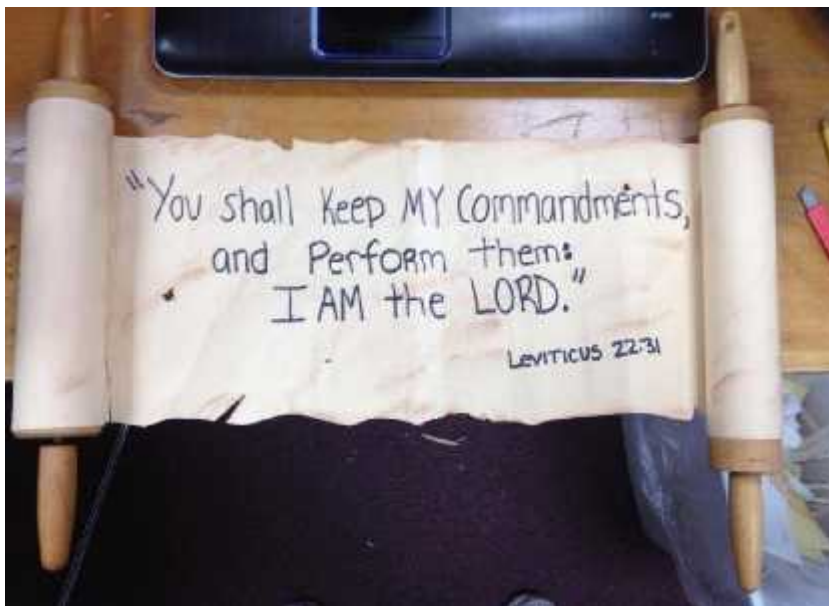 "You shall keep MY Commandments,
and Perform them:
I AM the LORD."
Leviticus 22:31